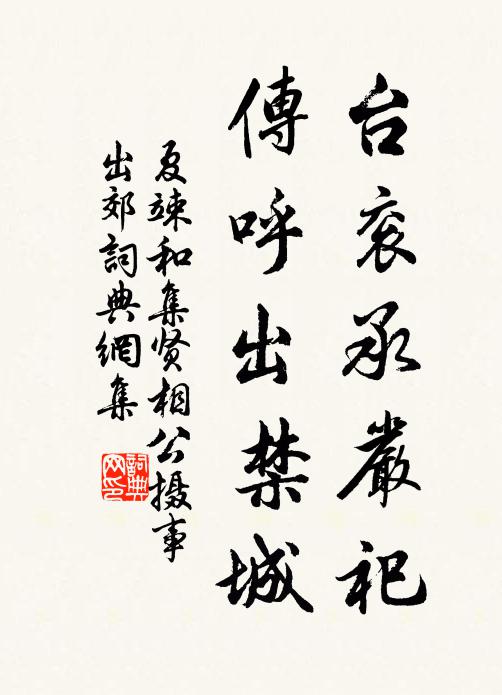 台衮承嚴祀
傳呼出禁城
夏竦和集贤相公摄事
出郊詞典網集
詞典网印